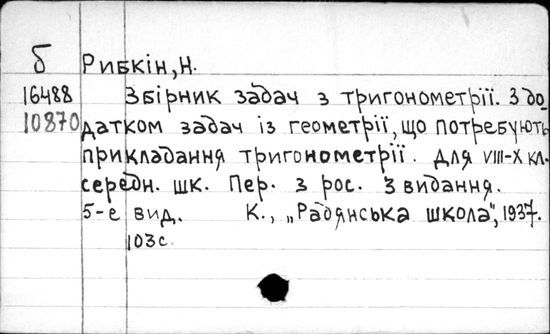 б Рибкін, Н.
16488 Збірник задач з тригонометрії. З до_
10870 датком задач із геометрії, що потребують
прикладання тригонометрії. Для VIII-X кл.
середн. шк. Пер. з рос. 3 видання.
5-е вид. К., „Радянська школа", 1937.
103с.